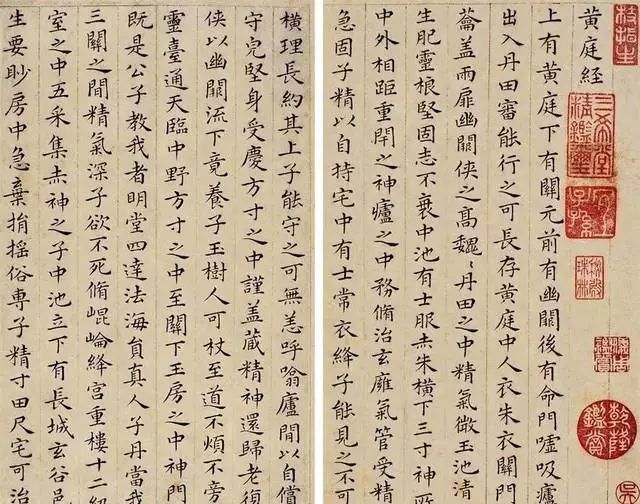 黃庭經
上有黃庭下有關元前有幽闕後有命門噓吸廬
出入丹田審能行之可長存黃庭中人衣朱衣關門
蘥盖兩扉幽闕俠之高魏丹田之中精氣微玉池清
生肥靈根堅固志不衰中池有士服赤朱橫下三寸神所
中外相距重閇之神廬之中務脩治玄廱氣管受精
急固子精以自持宅中有士常衣絳子能見之不可
橫理長約其上子能守之可無恙呼噏廬閒以自償
守皃堅身受慶方寸之中謹盖藏精神還歸老復
俠以幽闕流下竟養子玉樹人可杖至道不煩不旁
靈臺通天臨中野方寸之中至關下玉房之中神門
既是公子教我者明堂四達法海員真人子丹當我
三關之閒精氣深子欲不死脩崐崘絳宮重樓十二級
室之中五采集赤神之子中池立下有長城玄谷邑
生要眇房中急棄捐搖俗専子精寸田尺宅可治
三希堂精鑑璽
乾隆鑑賞